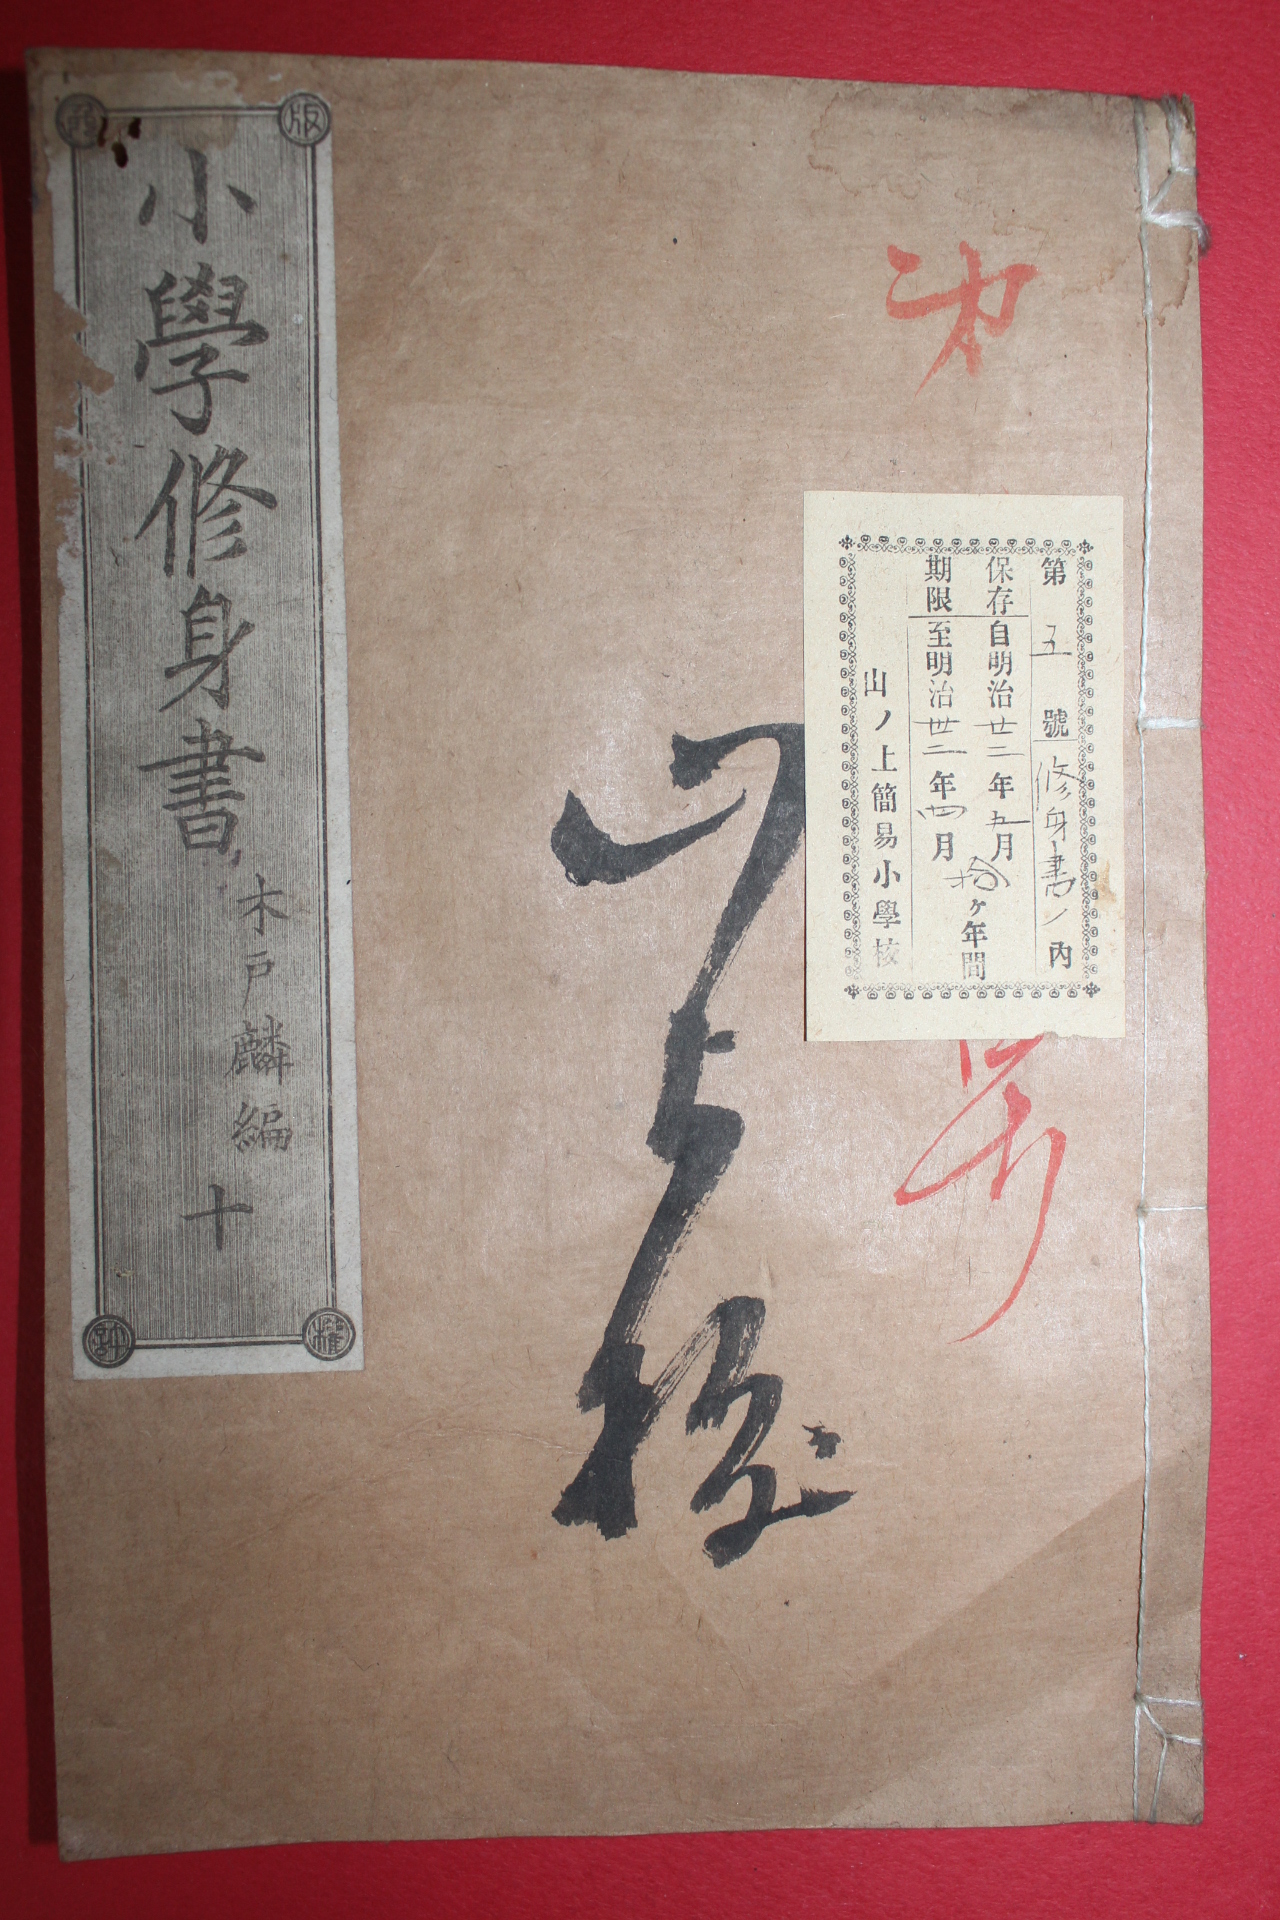 第五號修身書ノ內
保存自明治廿二年五月
期限至明治卅二年四月
拾ヶ年間
山ノ上簡易小學校
山上校
小學修身書
木戸麟編
十
版
權